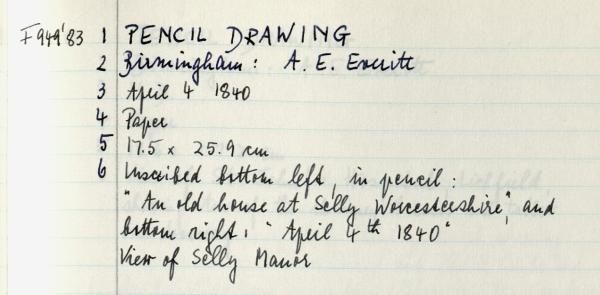 F949'83 1 PENCIL DRAWING
2 Birmingham: A. E. Everitt
3 April 4 1840
4 Paper
5 17.5 x 25.9 cm
6 Inscribed bottom left, in pencil:
"An old house at Selly Worcestershire", and
bottom right, "April 4th 1840"
View of Selly Manor